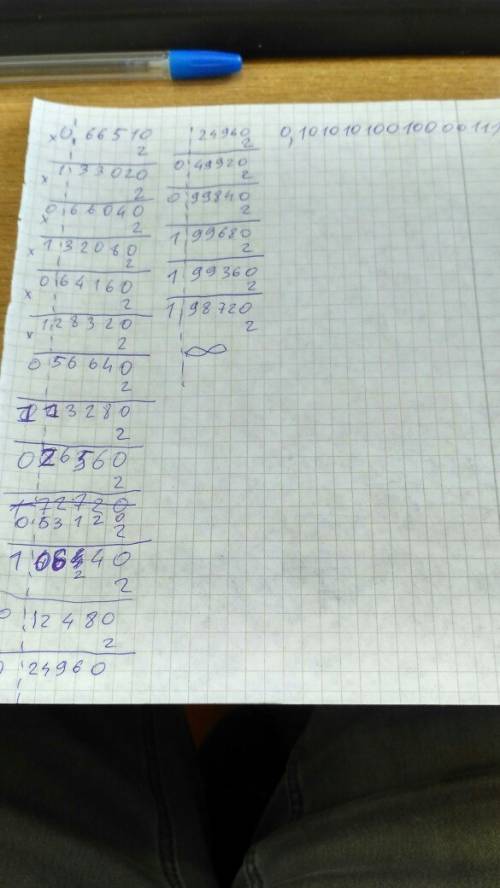 × 0,66510
2
× 133020
2
× 066040
2
× 132080
2
× 064160
2
× 128320
2
0 56640
2
1 13280
2
0 26560
2
0 53120
2
1 06240
2
0 12480
2
0 24960
24960
2
0 49920
2
0 99840
2
1 99680
2
1 99360
2
1 98720
2
∞